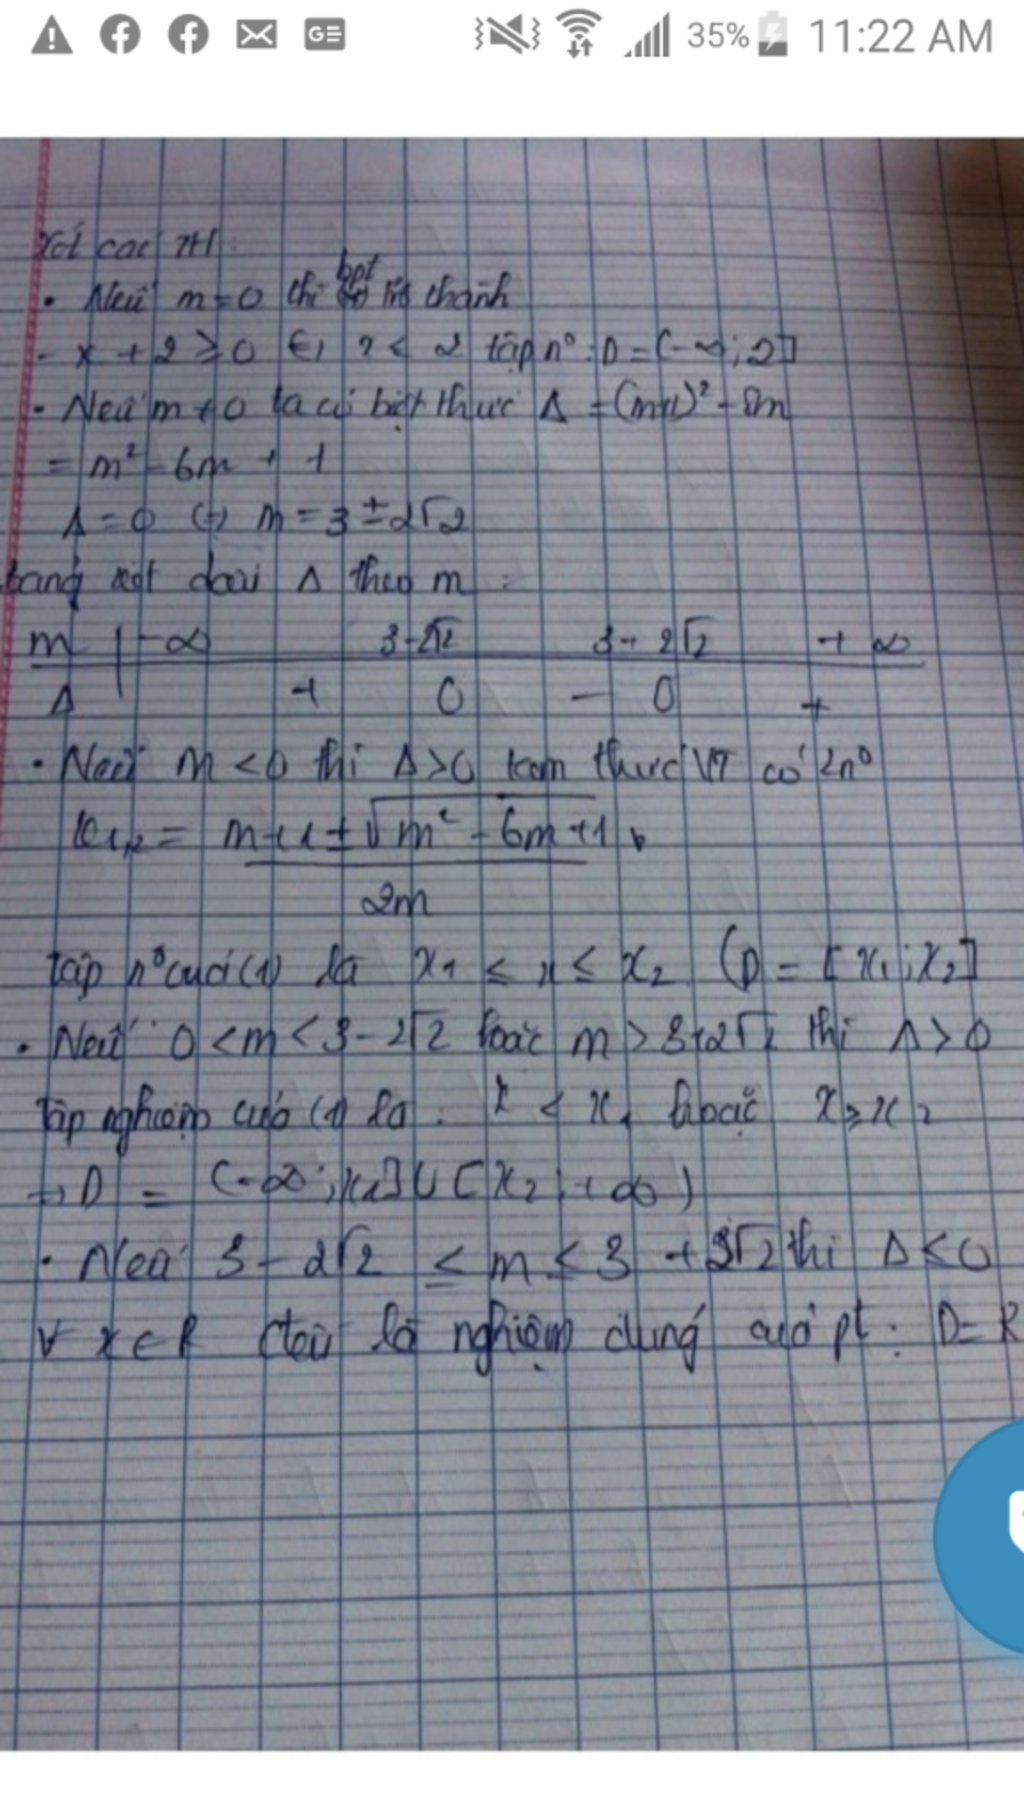 35% 11:22 AM
Xét các TH
bpt
• Nếu m = 0 thì trở thành
- x + 2 ≥ 0 ⇔ x ≤ 2 tập n⁰ : D = (-∞; 2]
• Nếu m ≠ 0 ta có biệt thức Δ = (m+1)² - 8m
= m² - 6m + 1
Δ = 0 ⇔ m = 3 ± 2√2
bảng xét dấu Δ theo m :
m | -∞ 3-2√2 3+2√2 +∞
Δ | + 0 - 0 +
• Nếu m < 0 thì Δ > 0 tam thức VT có 2n⁰
= m+1±√m² - 6m + 1
2m
tập n⁰ của (1) là x₁ ≤ x ≤ x₂ (D = [x₁; x₂]
• Nếu 0 < m < 3 - 2√2 hoặc m > 3+2√2 thì Δ > 0
Tập nghiệm của (1) là : x < x₁ hoặc x ≥ x₂
→ D = (-∞; x₁] ∪ [x₂; +∞)
• Nếu 3 - 2√2 ≤ m ≤ 3 + 2√2 thì Δ ≤ 0
∀ x ∈ R đều là nghiệm đúng của pt : D = R